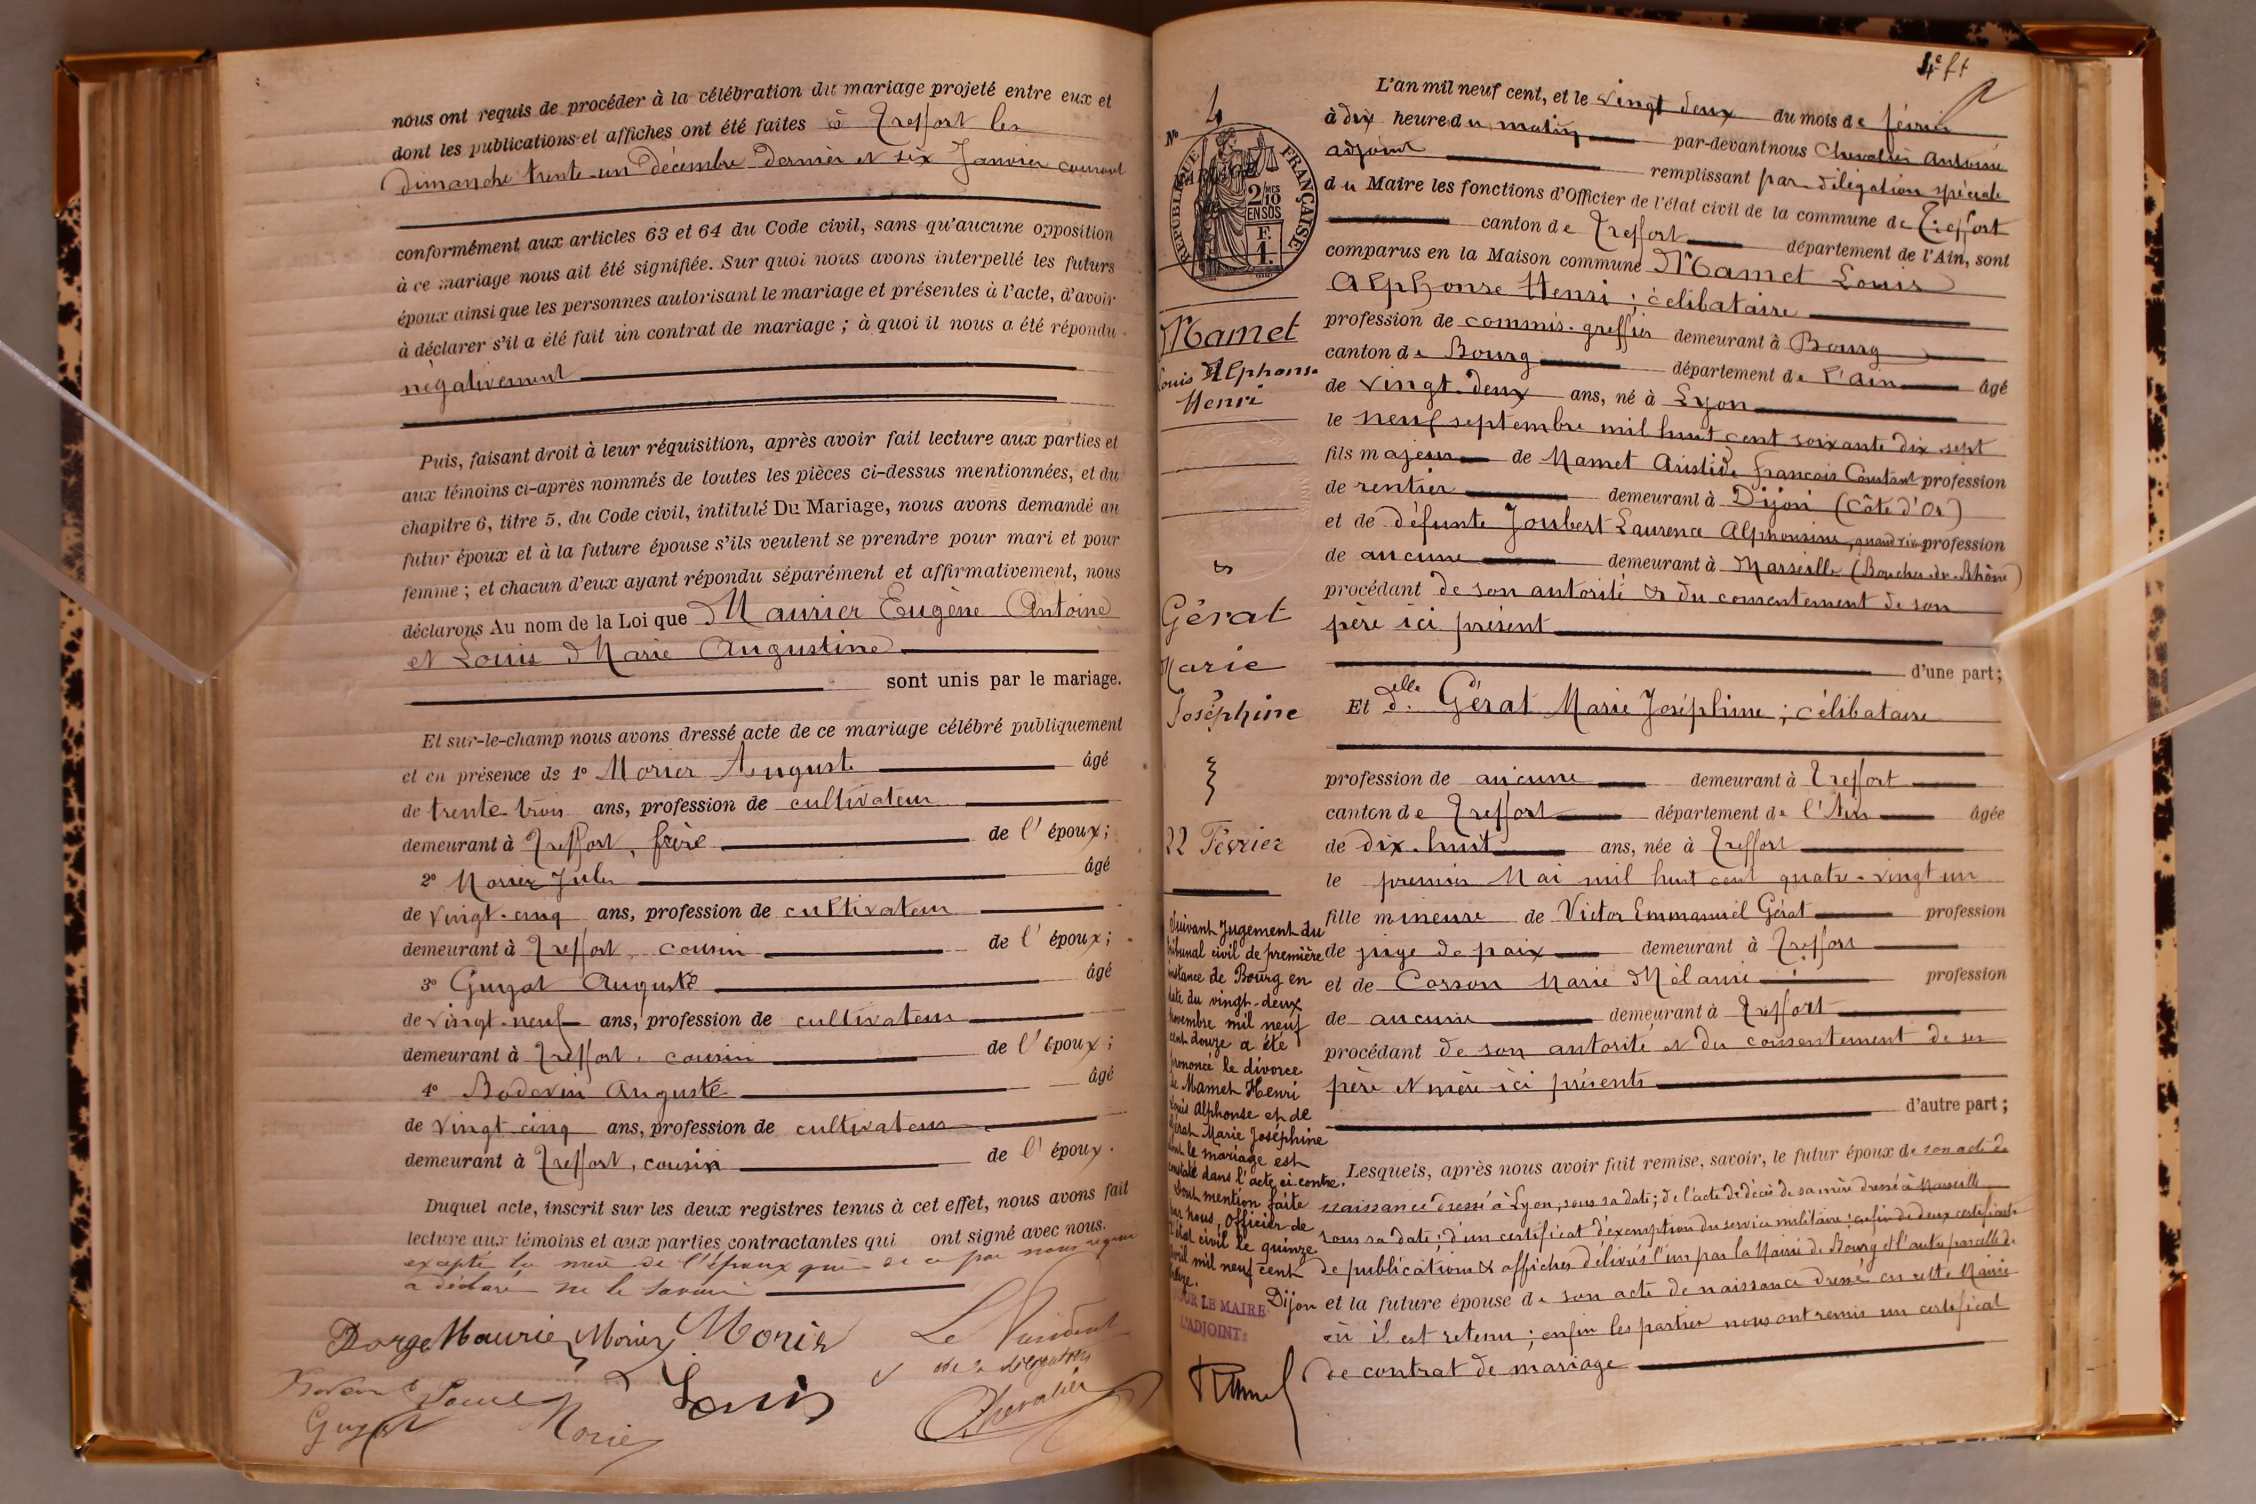 nous ont requis de procéder à la célébration du mariage projeté entre eux et
dont les publications et affiches ont été faites à Treffort les
dimanche trente-un décembre dernier et six Janvier courant
conformément aux articles 63 et 64 du Code civil, sans qu'aucune opposition
à ce mariage nous ait été signifiée. Sur quoi nous avons interpellé les futurs
époux ainsi que les personnes autorisant le mariage et présentes à l'acte, d'avoir
à déclarer s'il a été fait un contrat de mariage ; à quoi il nous a été répondu
négativement
Puis, faisant droit à leur réquisition, après avoir fait lecture aux parties et
aux témoins ci-après nommés de toutes les pièces ci-dessus mentionnées, et du
chapitre 6, titre 5, du Code civil, intitulé Du Mariage, nous avons demandé au
futur époux et à la future épouse s'ils veulent se prendre pour mari et pour
femme ; et chacun d'eux ayant répondu séparément et affirmativement, nous
déclarons Au nom de la Loi que Maurier Eugène Antoine
et Louis Marie Augustine
sont unis par le mariage.
Et sur-le-champ nous avons dressé acte de ce mariage célébré publiquement
et en présence de 1º Morier Auguste âgé
de trente trois ans, profession de cultivateur
demeurant à Treffort, frère de l'époux;
2º Morier Jules âgé
de vingt-cinq ans, profession de cultivateur
demeurant à Treffort, cousin de l'époux;
3º Guyat Auguste âgé
de vingt-neuf ans, profession de cultivateur
demeurant à Treffort, cousin de l'époux;
4º Auguste âgé
de vingt cinq ans, profession de cultivateur
demeurant à Treffort, cousin de l'époux.
Duquel acte, inscrit sur les deux registres tenus à cet effet, nous avons fait
lecture aux témoins et aux parties contractantes qui ont signé avec nous.
excepté la mère de l'époux qui de ce par nous requise
a déclaré ne le savoir
Maurier Morier Morier
Le Président
de la délégation
Louis
Chevalier
Guyat Morier
4e ft
Nº 4
RÉPUBLIQUE FRANÇAISE
2/10 EN SUS
F. 1.
Mamet
Louis Alphonse
Henri
&
Gérat
Marie
Joséphine
22 Février
Suivant Jugement du
tribunal civil de première
instance de Bourg en
date du vingt-deux
novembre mil neuf
cent douze a été
prononcé le divorce
de Mamet Henri
Louis Alphonse et de
Gérat Marie Joséphine
dont le mariage est
constaté dans l'acte ci-contre.
Dont mention faite
par nous, Officier de
l'état civil le quinze
avril mil neuf cent
treize.
POUR LE MAIRE
L'ADJOINT:
L'an mil neuf cent, et le vingt deux du mois de février
à dix heures du matin par-devant nous Chevalier Antoine
adjoint remplissant par délégation spéciale
du Maire les fonctions d'Officier de l'état civil de la commune de Treffort
canton de Treffort département de l'Ain, sont
comparus en la Maison commune Mamet Louis
Alphonse Henri ; célibataire
profession de commis-greffier demeurant à Bourg
canton de Bourg département de l'Ain âgé
de vingt-deux ans, né à Lyon
le neuf septembre mil huit cent soixante dix sept
fils majeur de Mamet Aristide François Constant profession
de rentier demeurant à Dijon (Côte d'Or)
et de défunte Joubert Laurence Alphonsine, quand vivait profession
de aucune demeurant à Marseille (Bouches-du-Rhône)
procédant de son autorité & du consentement de son
père ici présent
d'une part;
Et delle Gérat Marie Joséphine ; célibataire
profession de aucune demeurant à Treffort
canton de Treffort département de l'Ain âgée
de dix-huit ans, née à Treffort
le premier Mai mil huit cent quatre-vingt un
fille mineure de Victor Emmanuel Gérat profession
de juge de paix demeurant à Treffort
et de Corson Marie Mélanie profession
de aucune demeurant à Treffort
procédant de son autorité et du consentement de ses
père et mère ici présents
d'autre part ;
Lesquels, après nous avoir fait remise, savoir, le futur époux de son acte de
naissance dressé à Lyon, sous sa date; de l'acte de décès de sa mère dressé à Marseille,
sous sa date ; d'un certificat d'exemption du service militaire ; enfin de deux certificats
de publications & affiches délivrés l'un par la Mairie de Bourg et l'autre par celle de
Dijon et la future épouse de son acte de naissance dressé en cette Mairie
où il est retenu ; enfin les parties nous ont remis un certificat
de contrat de mariage